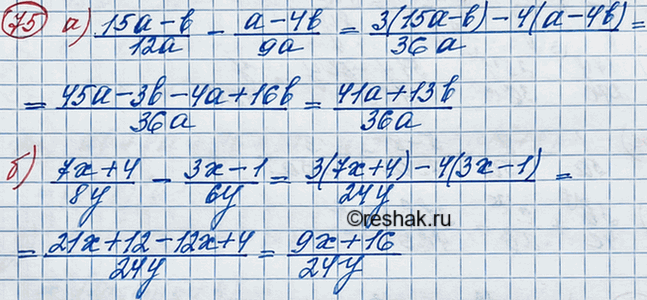 75 а) (15a-b)/12a - (a-4b)/9a = (3(15a-b)-4(a-4b))/36a =
= (45a-3b-4a+16b)/36a = (41a+13b)/36a
б) (7x+4)/8y - (3x-1)/6y = (3(7x+4)-4(3x-1))/24y =
©reshak.ru
= (21x+12-12x+4)/24y = (9x+16)/24y